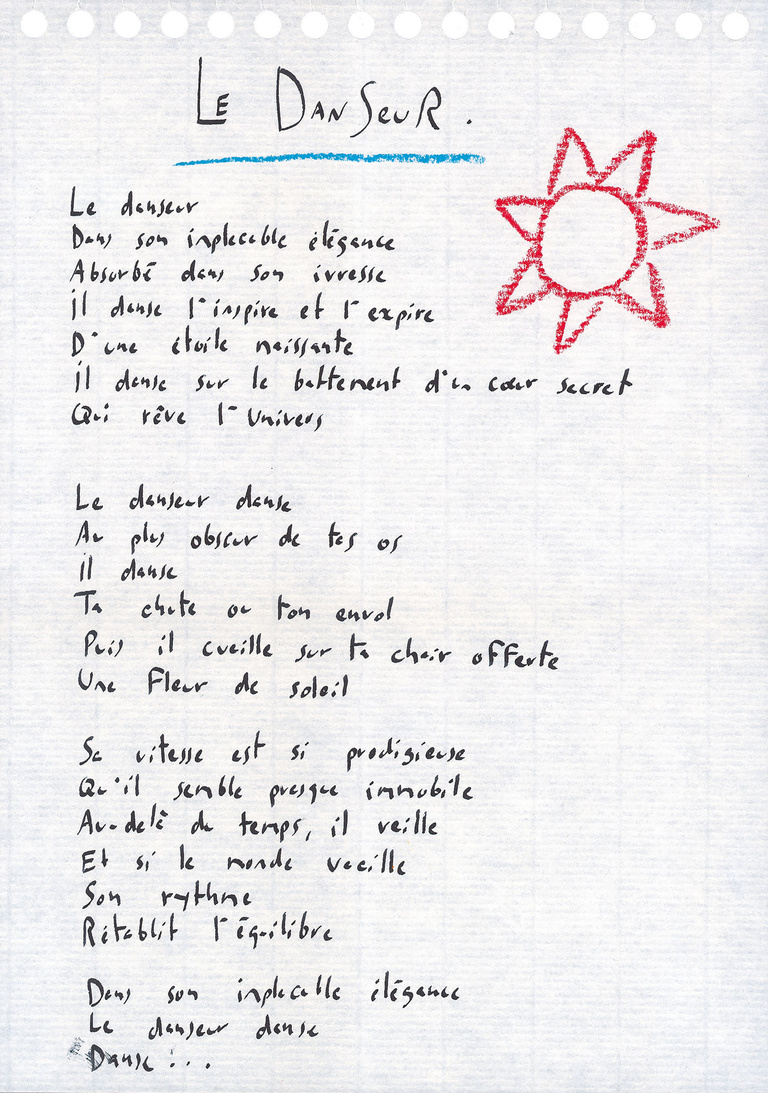 LE DANSEUR.
Le danseur
Dans son implacable élégance
Absorbé dans son ivresse
Il danse l'inspire et l'expire
D'une étoile naissante
Il danse sur le battement d'un cœur secret
Qui rêve l'Univers
Le danseur danse
Au plus obscur de tes os
Il danse
Ta chute ou ton envol
Puis il cueille sur ta chair offerte
Une Fleur de soleil
Sa vitesse est si prodigieuse
Qu'il semble presque immobile
Au-delà du temps, il veille
Et si le monde vacille
Son rythme
Rétablit l'équilibre
Dans son implacable élégance
Le danseur danse
Danse...